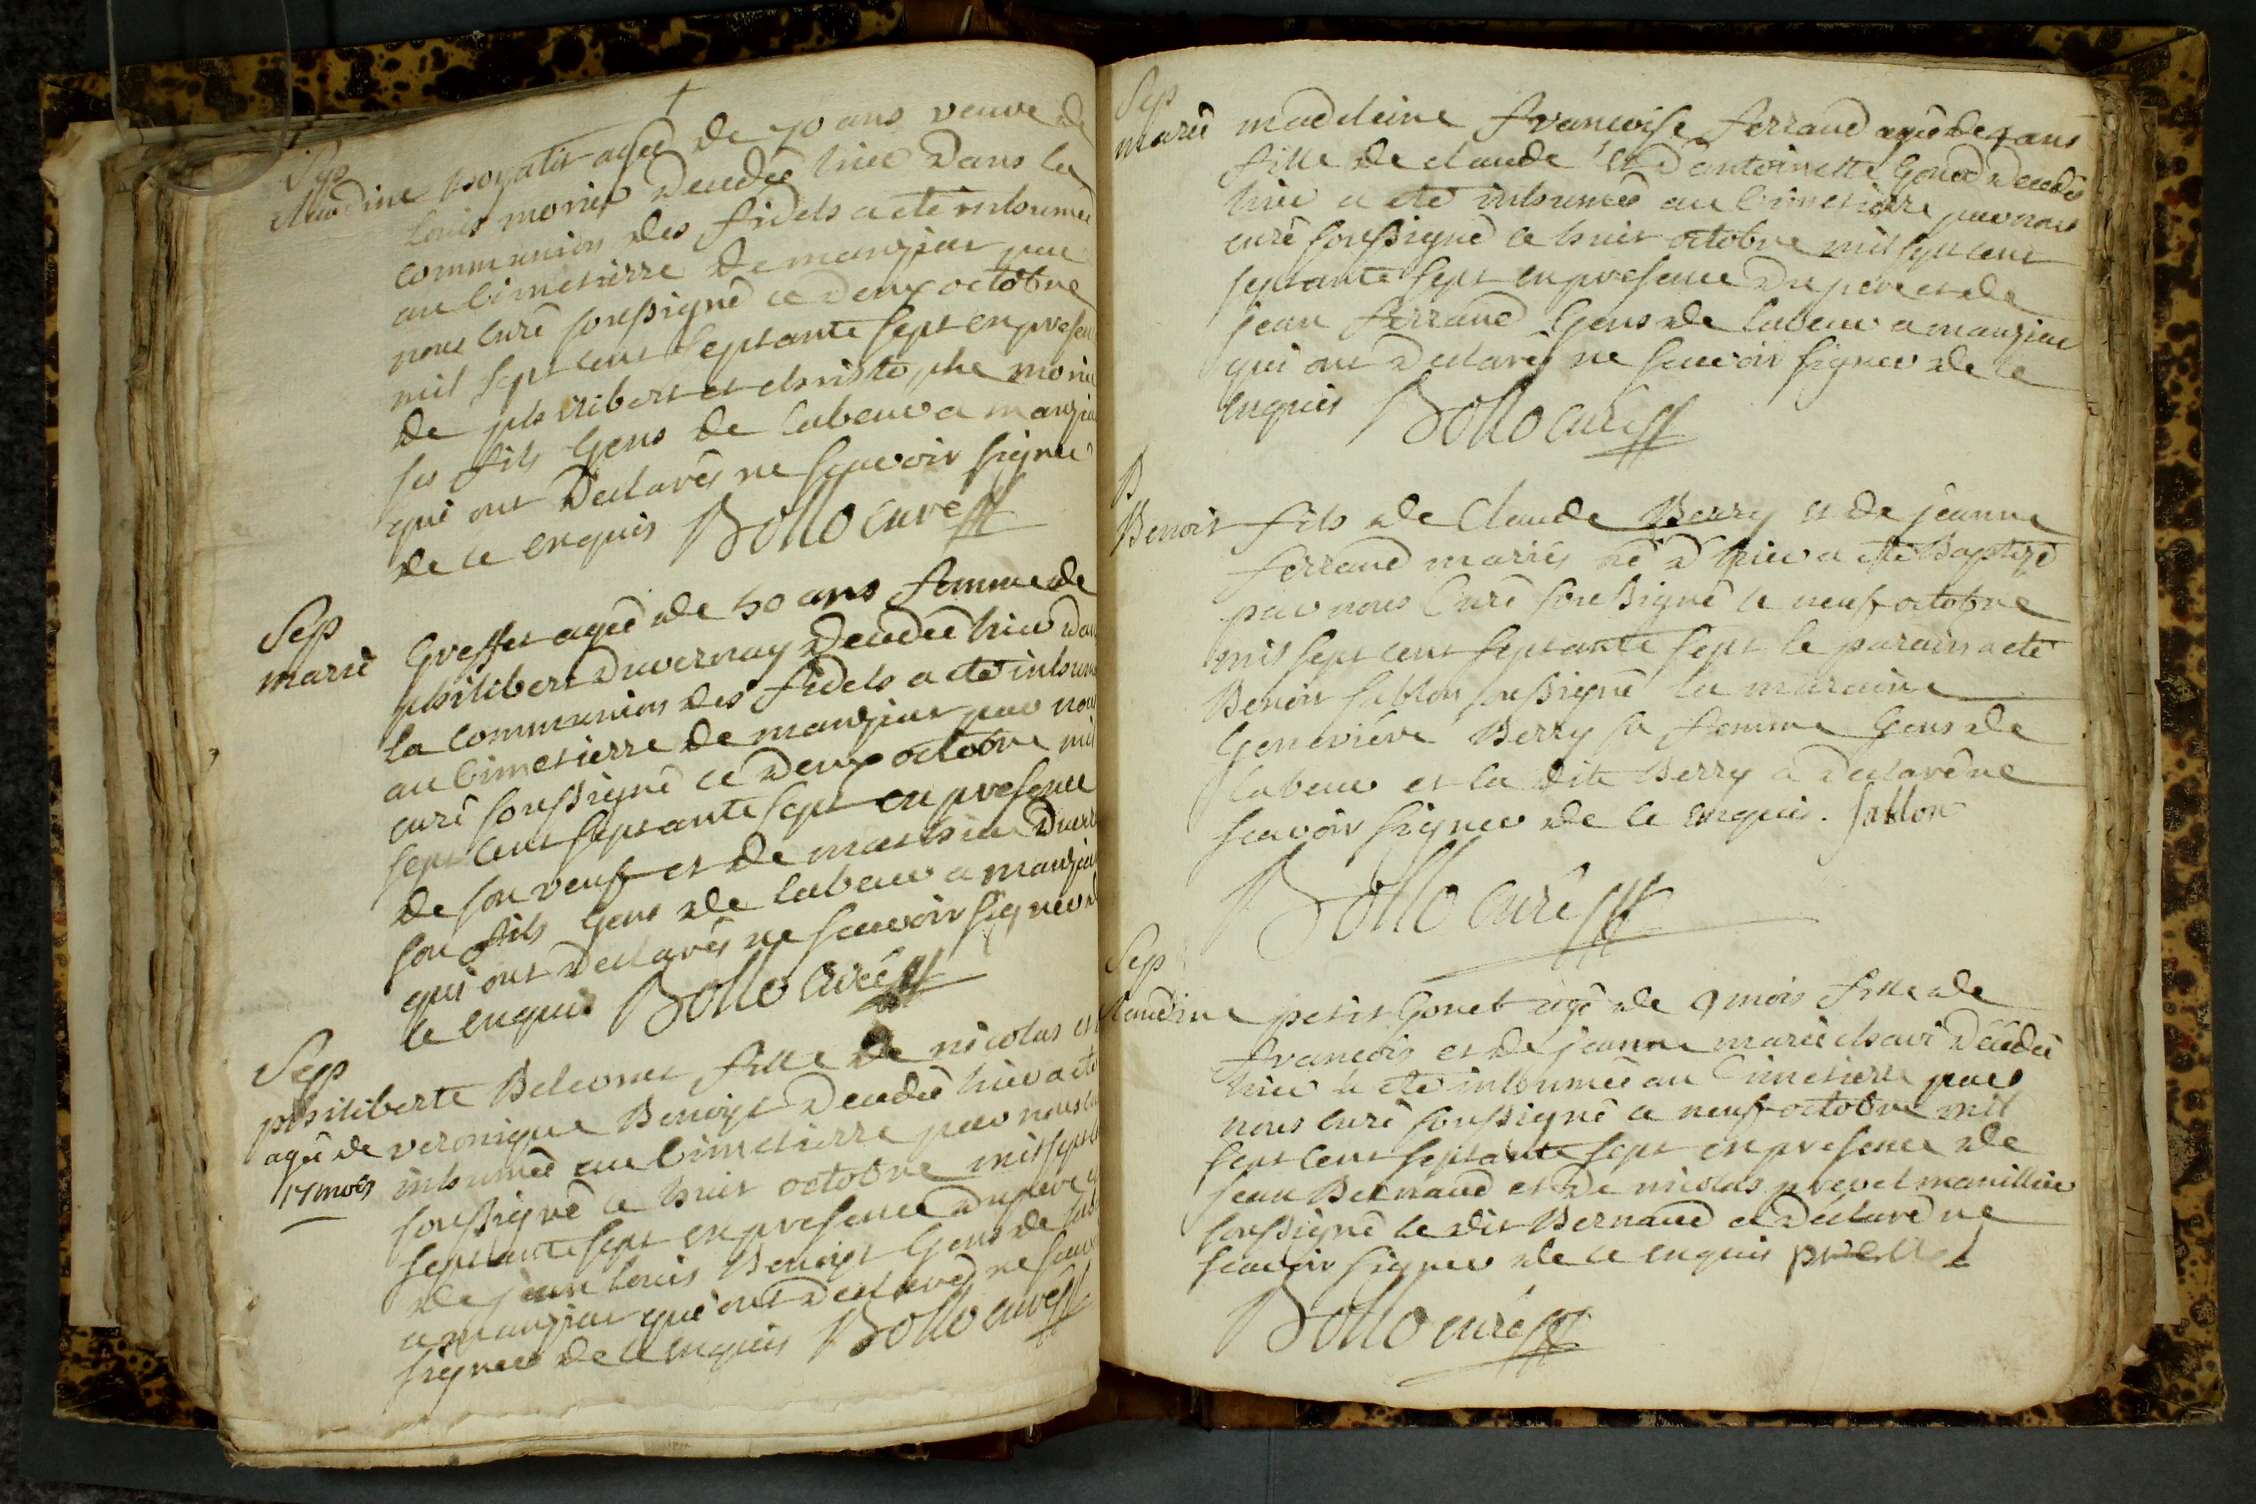 Sep
Claudine agée de 70 ans veuve de
Louis monier decedée hier dans la
communion des fidels a eté inhumée
au cimetierre de manziat par
nous curé soussigné ce deux octobre
mil sept cent septante sept en presen
de philibert et christophe monie
ses fils gens de labeur a manzia
qui ont declarés ne scavoir signer
de ce enquis Bollo curé
Sep
marie Greffet agée de 50 ans femme de
philibert duvernay decedée hier dan
la communion des fidels a eté inhum
au cimetierre de manziat par nou
curé soussigné ce deux octobre mil
sept cent septante sept en presence
de son veuf et de mathieu duver
son fils gens de labeur a manzia
qui ont declarés ne scavoir signer d
ce enquis Bollo curé
Sep
philiberte Belcour fille de nicolas et
agée de veronique Benoist decedée hier a eté
17 mois inhumée au cimetierre par nous cu
soussigné ce huit octobre mil sept c
septante sept en presence du pere e
de jean louis Benoist gens de lab
a manziat qui ont declarés ne scav
signer de ce enquis Bollo curé
Sep
marie madeleine francoise ferrand agée de ans
fille de claude et d'antoinette Gonod decedée
hier a eté inhumée au cimetierre par nous
curé soussigné ce huit octobre mil sept cent
septante sept en presence du pere et de
jean ferrand gens de labeur a manziat
qui ont declarés ne scavoir signer de ce
enquis Bollo curé
B
Benoit fils de Claude Berry et de jeanne
ferrand mariés né d'hier a eté Baptizé
par nous Curé soussigné le neuf octobre
mil sept cent septante sept le parain a eté
Benoit sablon soussigné la maraine
Geneviéve Berry sa femme gens de
labeur et la dite Berry a declaré ne
scavoir signer de ce enquis. sablon
Bollo curé
Sep
Claudine petit Gonet agé de 9 mois fille de
francois et de jeanne marie chavi decedée
hier a eté inhumée au Cimetierre par
nous curé soussigné ce neuf octobre mil
sept cent septante sept en presence de
jean Bernand et de nicolas prevel manillier
soussigné le dit Bernand a declaré ne
scavoir signer de ce enquis prevel
Bollo curé